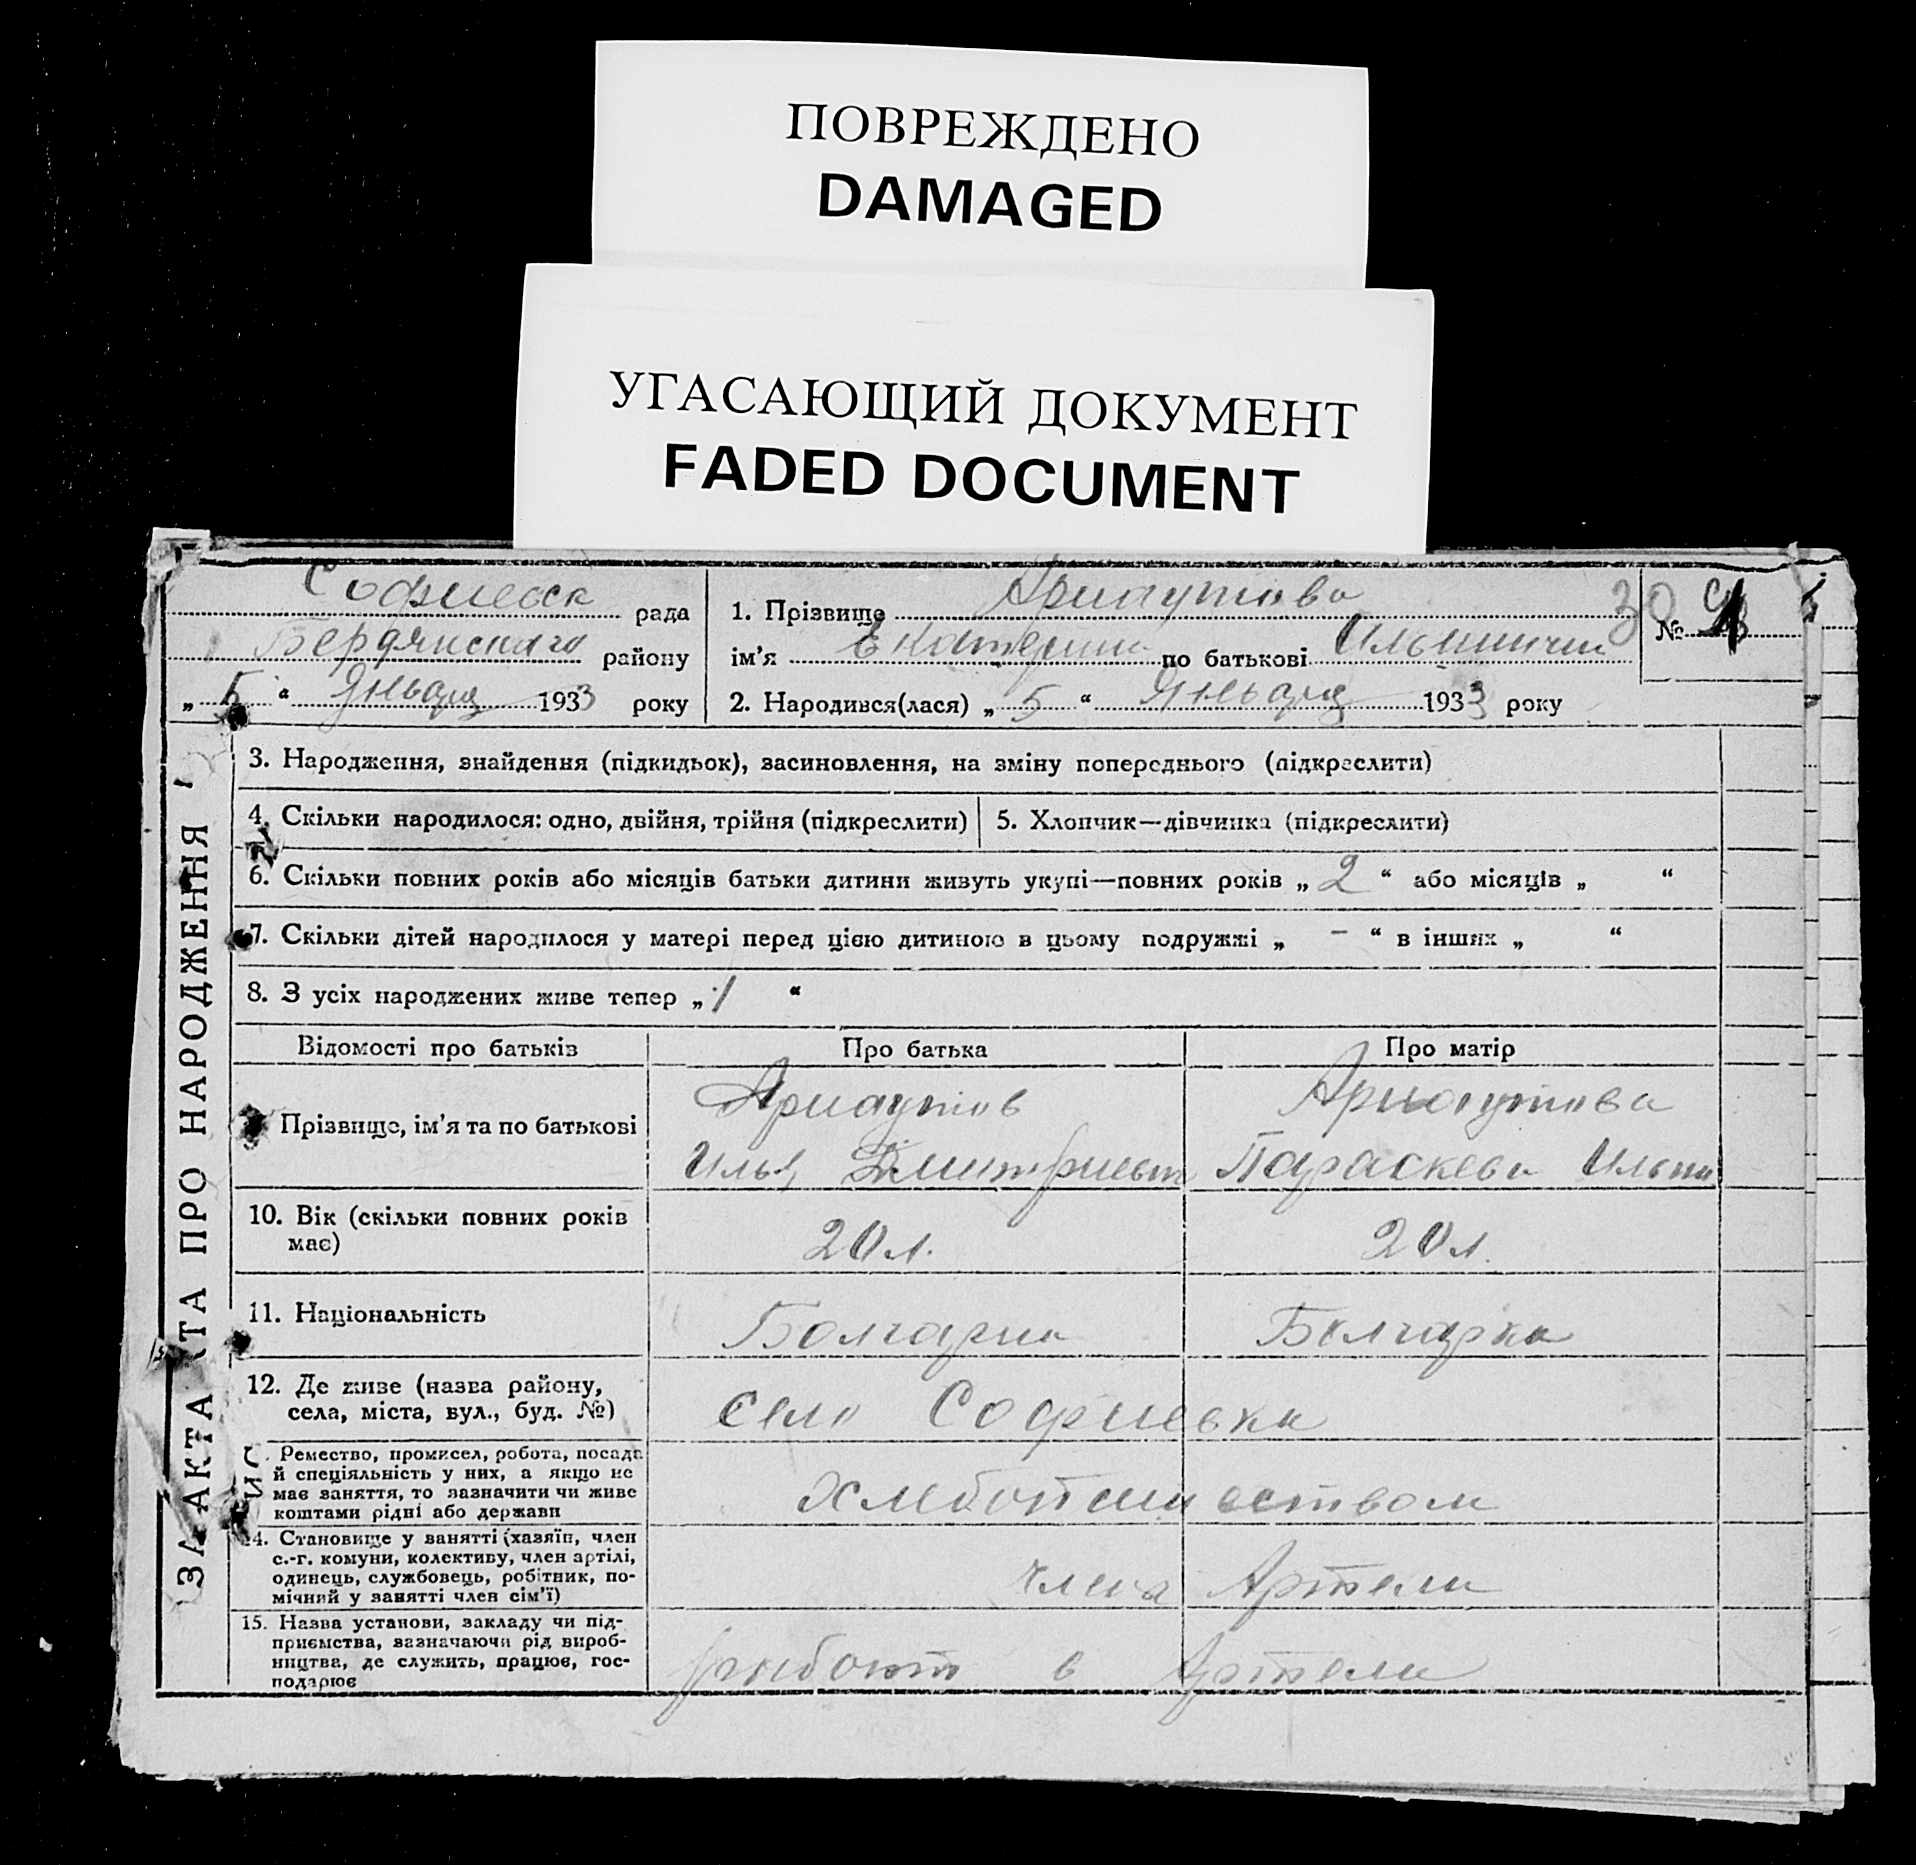 ПОВРЕЖДЕНО
DAMAGED
УГАСАЮЩИЙ ДОКУМЕНТ
FADED DOCUMENT
Софиевск рада
Бердянскаго району
„ 5 “ Января 1933 року
1. Прізвище Арнаутова
ім’я Екатерина по батькові Ильинични
2. Народився(лася) „ 5 “ Января 1933 року
30
№
ЗАПИС АКТА ПРО НАРОДЖЕННЯ
3. Народження, знайдення (підкидьок), засиновлення, на зміну попереднього (підкреслити)
4. Скільки народилося: одно, двійня, трійня (підкреслити)
5. Хлопчик—дівчинка (підкреслити)
6. Скільки повних років або місяців батьки дитини живуть укупі—повних років „ 2 “ або місяців „ “
7. Скільки дітей народилося у матері перед цією дитиною в цьому подружжі „ – “ в інших „ “
8. З усіх народжених живе тепер „ 1 “
Відомості про батьків
Про батька
Про матір
Прізвище, ім’я та по батькові
Арнаутов
Илья Дмитриевич
Арнаутова
Параскева Ильин
10. Вік (скільки повних років
має)
20 л.
20 л.
11. Національність
Болгарин
Болгарка
12. Де живе (назва району,
села, міста, вул., буд. №)
село Софиевка
Ремество, промисел, робота, посада
й спеціяльність у них, а якщо не
має заняття, то зазначити чи живе
коштами рідні або держави
Хлебопашеством
14. Становище у занятті (хазяїн, член
с.-г. комуни, колективу, член артілі,
одинець, службовець, робітник, по-
мічний у занятті член сім’ї)
члена Артели
15. Назва установи, закладу чи під-
приємства, зазначаючи рід вироб-
ництва, де служить, працює, гос-
подарює
работ в Артели